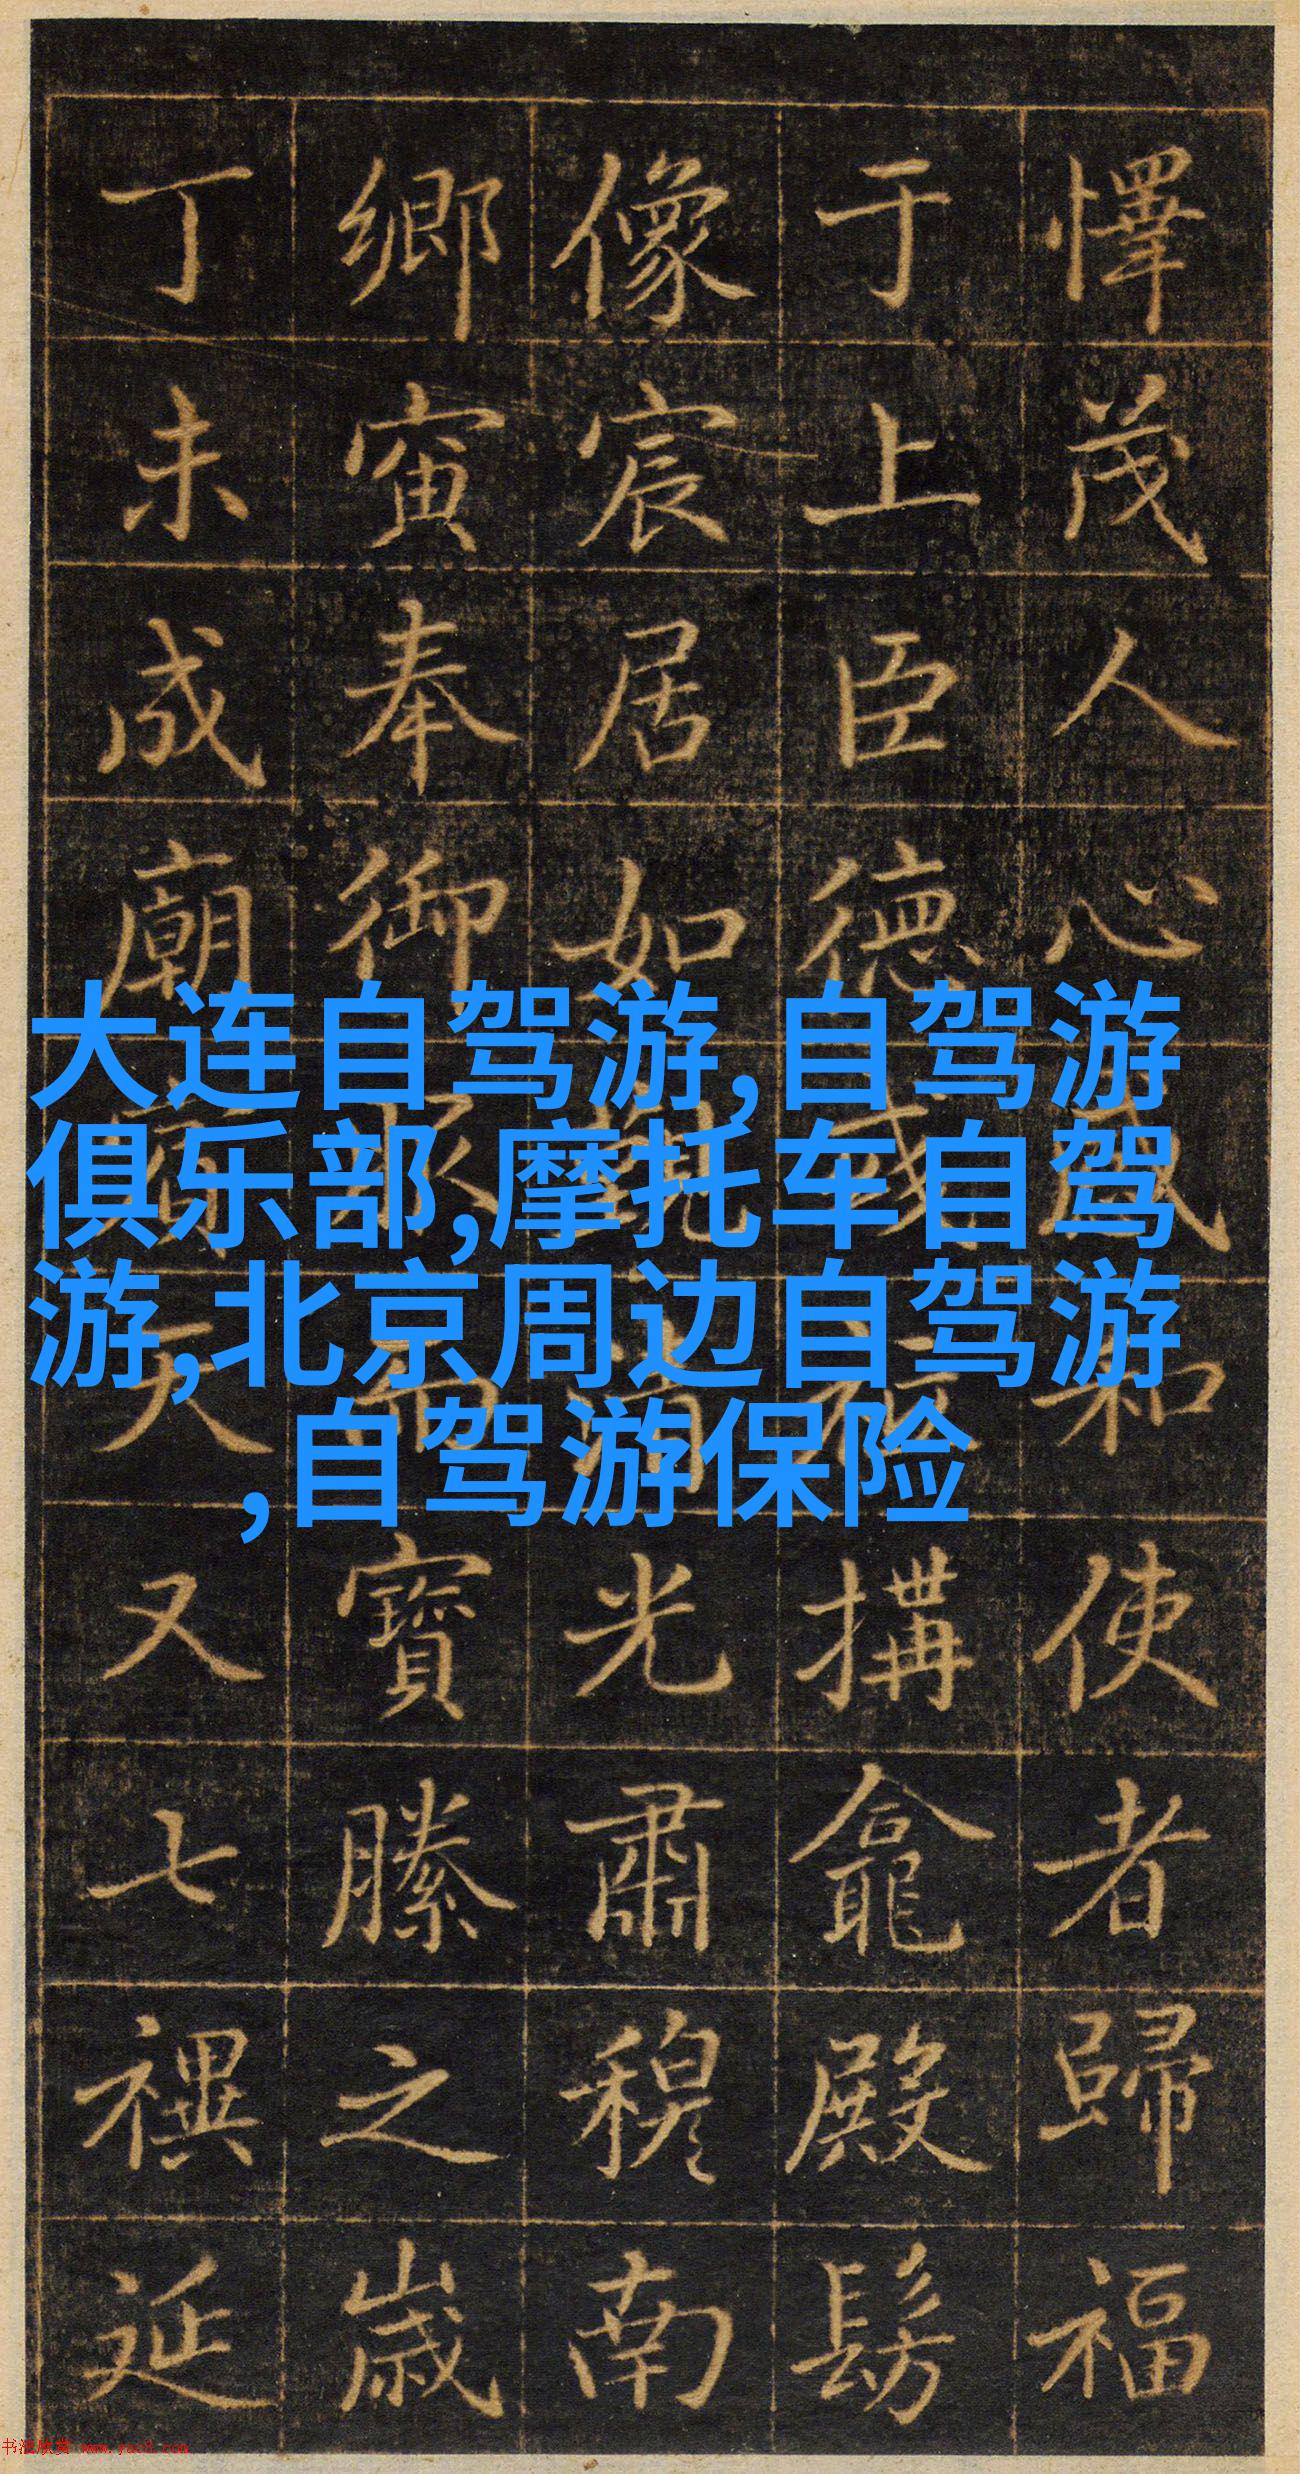 懌茂人心咸和使者歸福
于上臣德搆龕殿髣
像宸居如光肅穆南
鄉寅奉御服寶縢之歲
丁未成廟天又七禩延
大连自驾游,自驾游
俱乐部,摩托车自驾
游,北京周边自驾游
,自驾游保险
书法欣赏 www.yac8.com